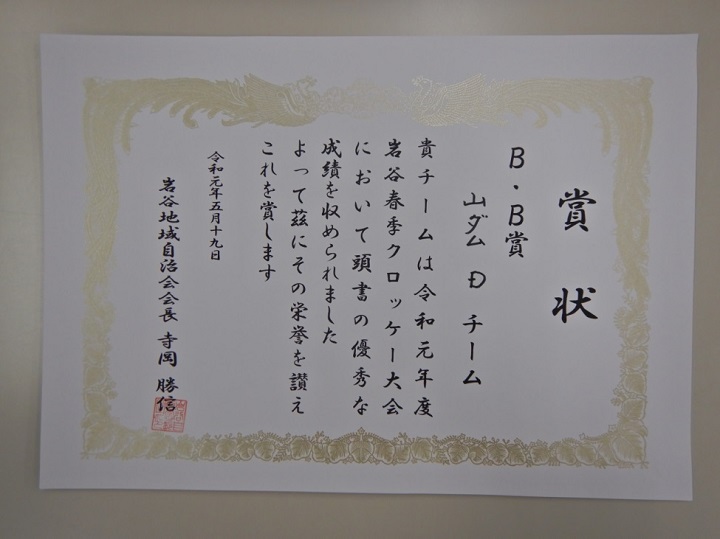 賞状
B・B賞
山ダム Ð チーム
貴チームは令和元年度
岩谷春季クロッケー大会
において頭書の優秀な
成績を収められました
よって茲にその栄誉を讃え
これを賞します
令和元年五月十九日
岩谷地域自治会会長 寺岡 勝信